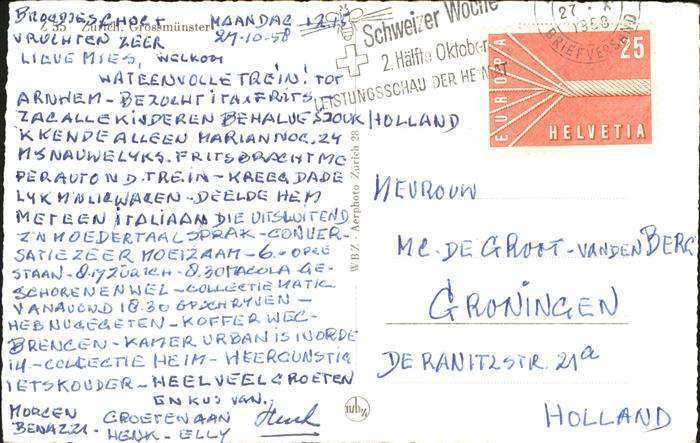 BROODJESCHOLT MAANDAG 12.45
Z 35 Zürich. Grossmünster
VRUCHTEN ZEER 27-10-58
LIEVE MIES, WELKOM
WAT EEN VOLLE TREIN! TOT
ARNHEM - BEZOCHT ITA FRITS
ZAG ALLE KINDEREN BEHALVE SJOUK
KKENDE ALLEEN MARIAN NOG. 24
MS NAUWELYKS. FRITS BRACHT ME
PER AUTO N D. TREIN - KREEG DADE
LYK MN LIGWAGEN - DEELDE HEM
MET EEN ITALIAAN DIE UITSLUITEND
ZN MOEDERTAAL SPRAK - CONVER-
SATIE ZEER MOEIZAAM - 6.- OPGE
STAAN - 8.17 ZÜRICH - 8.30 TACOLA GE-
SCHOREN EN WEL - COLLECTIE MATIC
VANAVOND 18.30 GESCHREVEN -
HEB NU GEGETEN - KOFFER WEG-
BRENGEN - KAMER URBAN IS IN ORDE
14 - COLLECTIE HEIM - HEERGUNSTIG
IETS KOUDER - HEEL VEEL GROETEN
EN KUS VAN,
MORGEN GROETEN AAN Henk
BENAZZI - HENK - ELLY
WBZ - Aerphoto Zürich 28
Schweizer Woche
2. Hälfte Oktober
LEISTUNGSSCHAU DER HEIMAT
27. X
1958
BRIEFVERSAND
EUROPA
25
HELVETIA
HOLLAND
MEVROUW
MC. DE GROOT - VANDEN BERG
GRONINGEN
DE RANITZSTR. 21a
HOLLAND